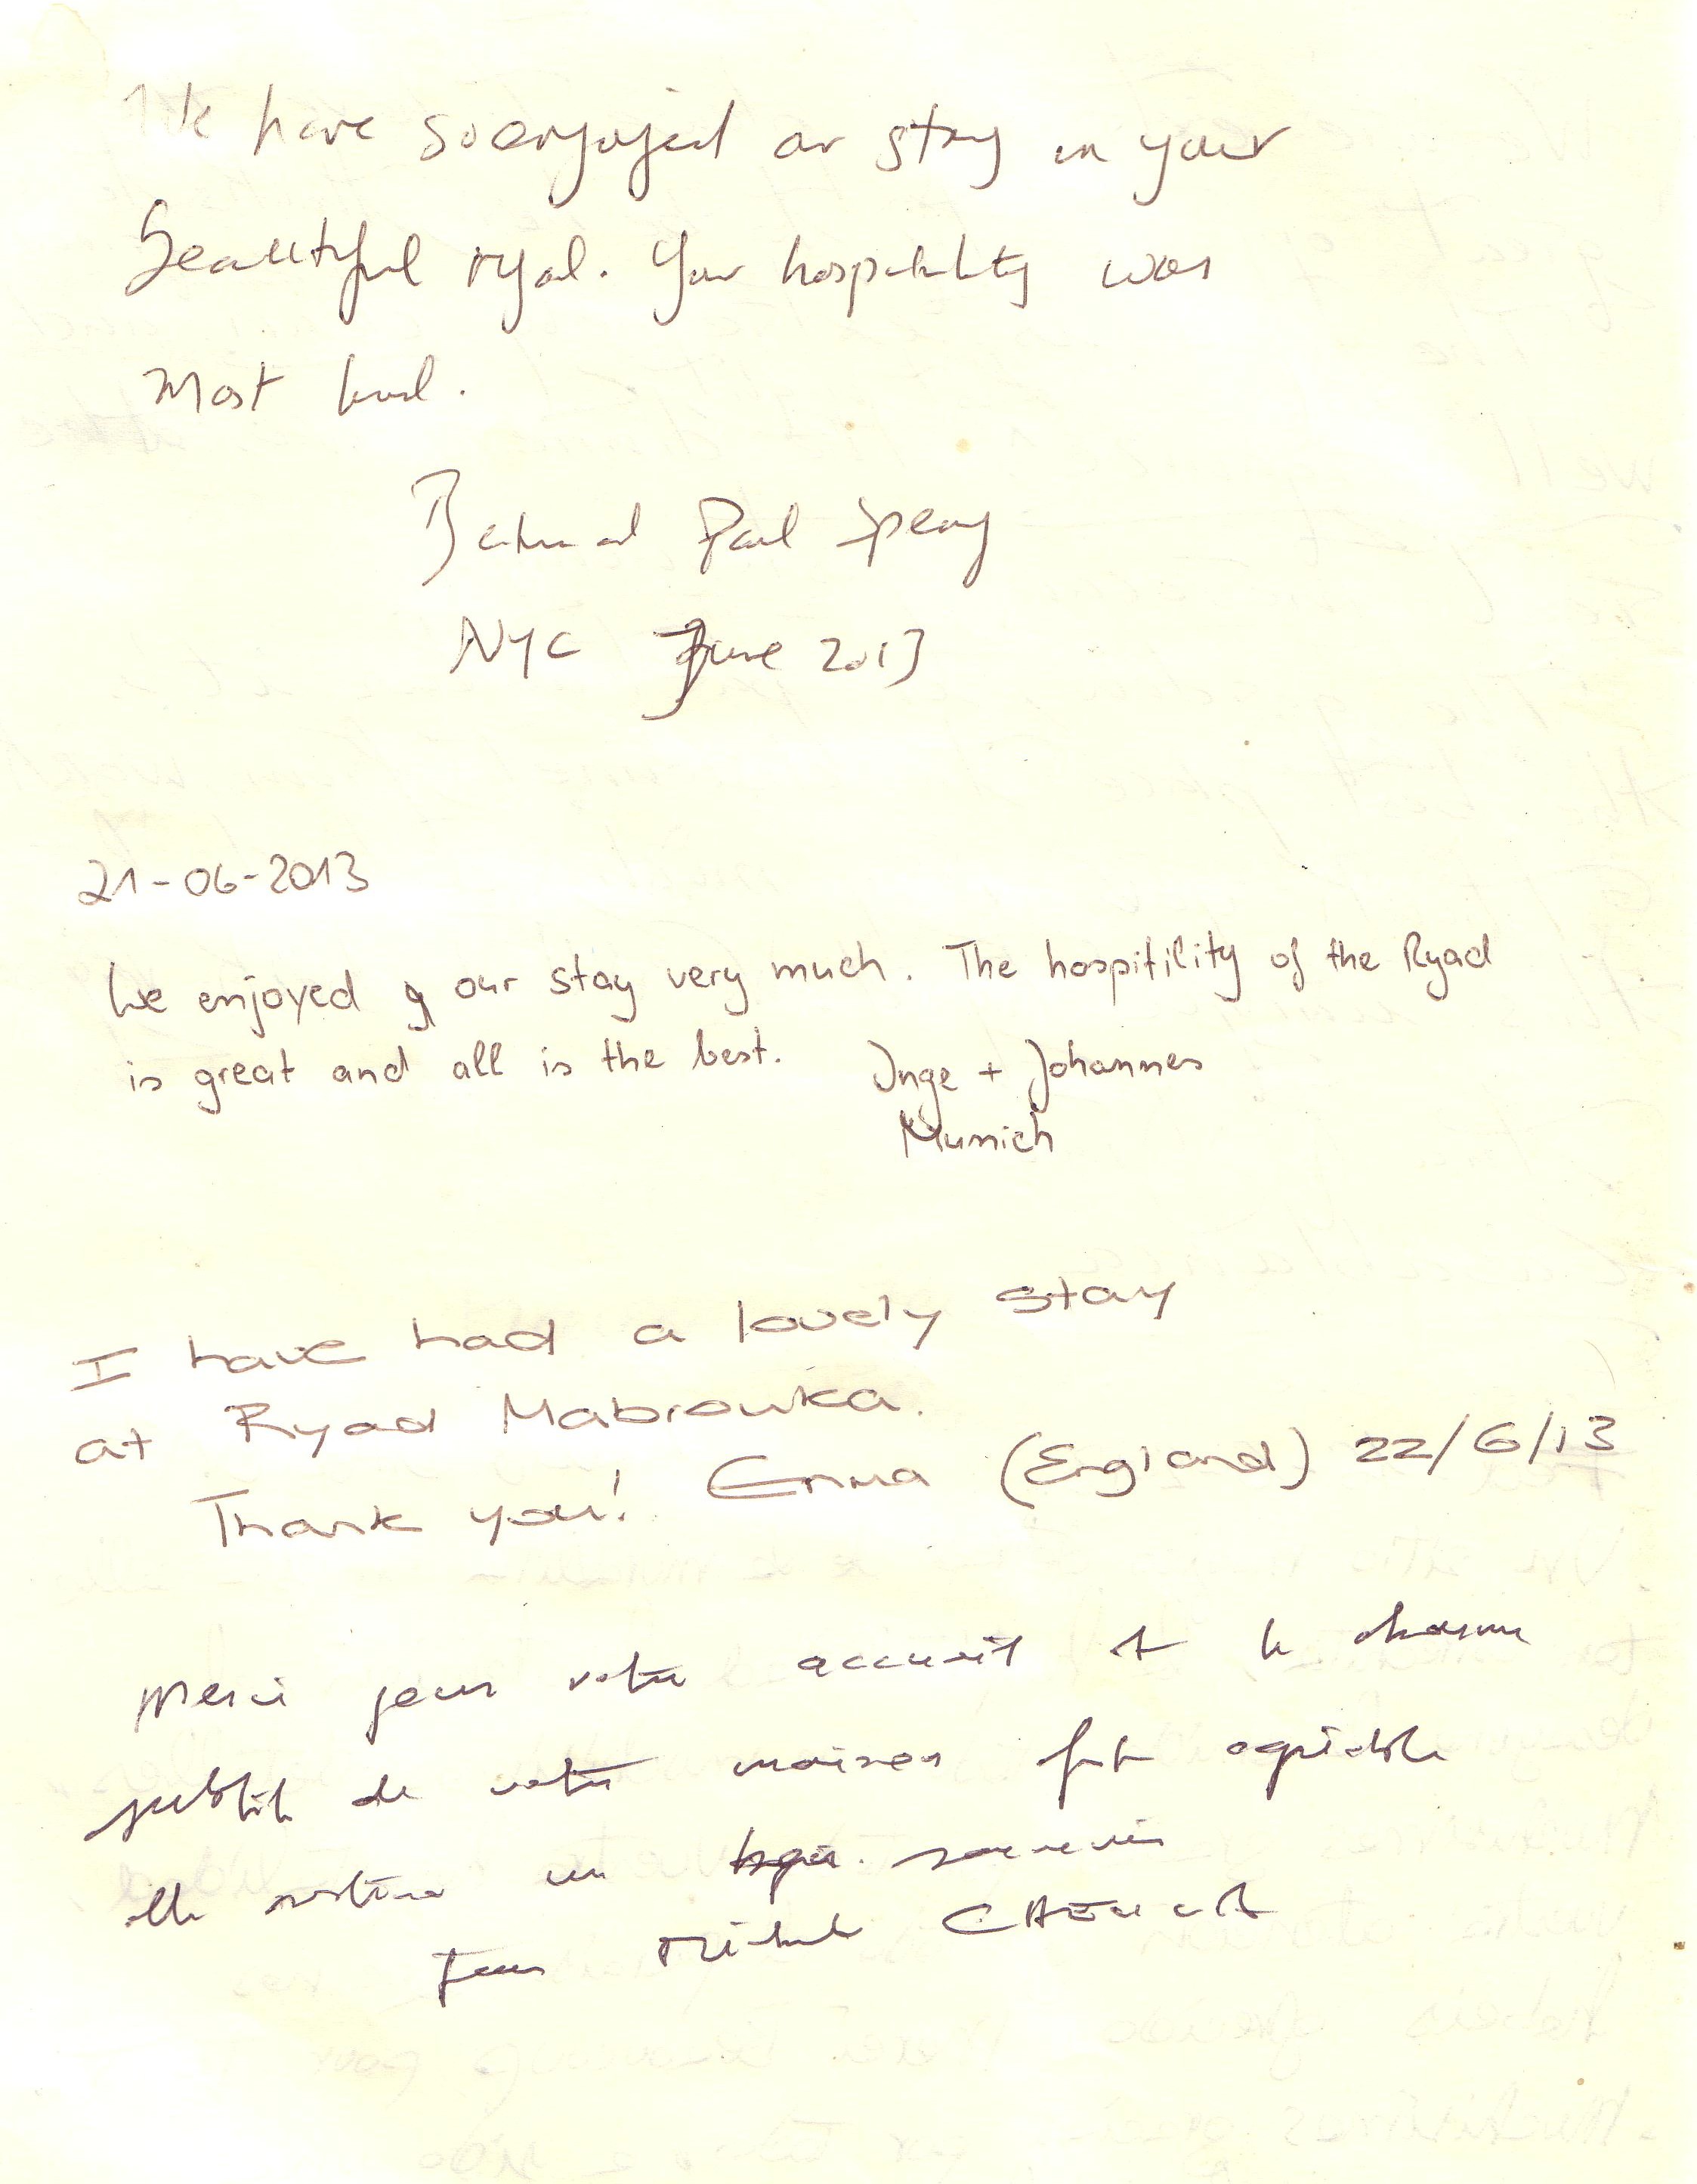 We have so enjoyed our stay in your
beautiful ryad. Your hospitality was
most kind.
Paul
NYC June 2013
21-06-2013
We enjoyed our stay very much. The hospitility of the Ryad
is great and all is the best.
Inge + Johannes
Munich
I have had a lovely stay
at Ryad Mabrouka.
Thank you! Emma (England) 22/6/13
Merci pour votre accueil et le charme
subtil de votre maison fut agréable
elle restera un souvenir